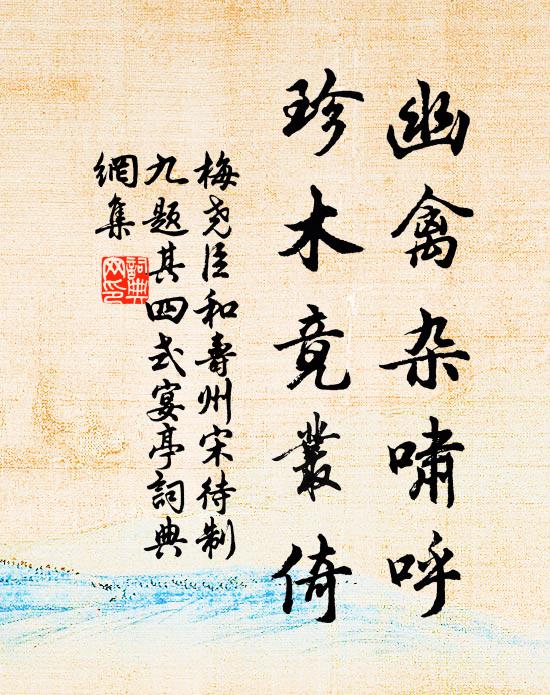 幽禽杂啸呼
珍木竟叢倚
梅尧臣和壽州宋待制
九题其四式宴亭詞典
網集
詞典网印